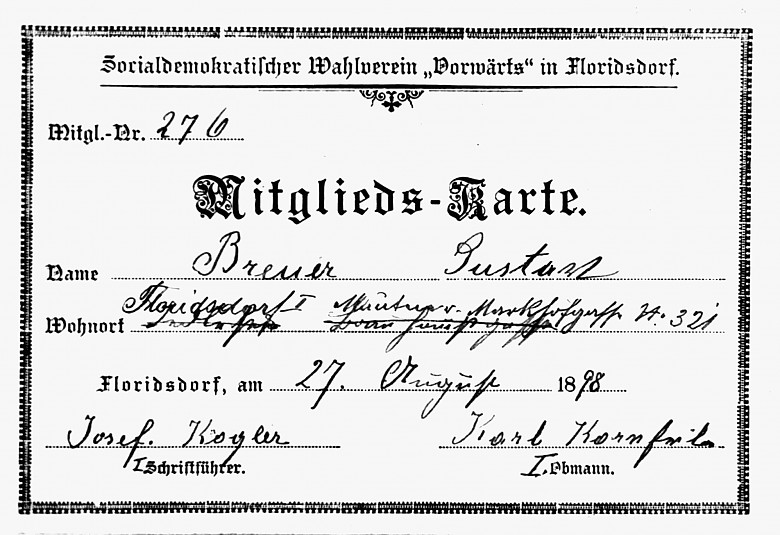 Socialdemokratischer Wahlverein „Vorwärts“ in Floridsdorf.
Mitgl.-Nr. 276
Mitglieds-Karte.
Name Breuer Gustav
Wohnort Floridsdorf I Mautner-Markhofgasse N. 321
Floridsdorf, am 27. August 1898
Josef. Kogler Karl Kornfeil
I Schriftführer. I. Obmann.